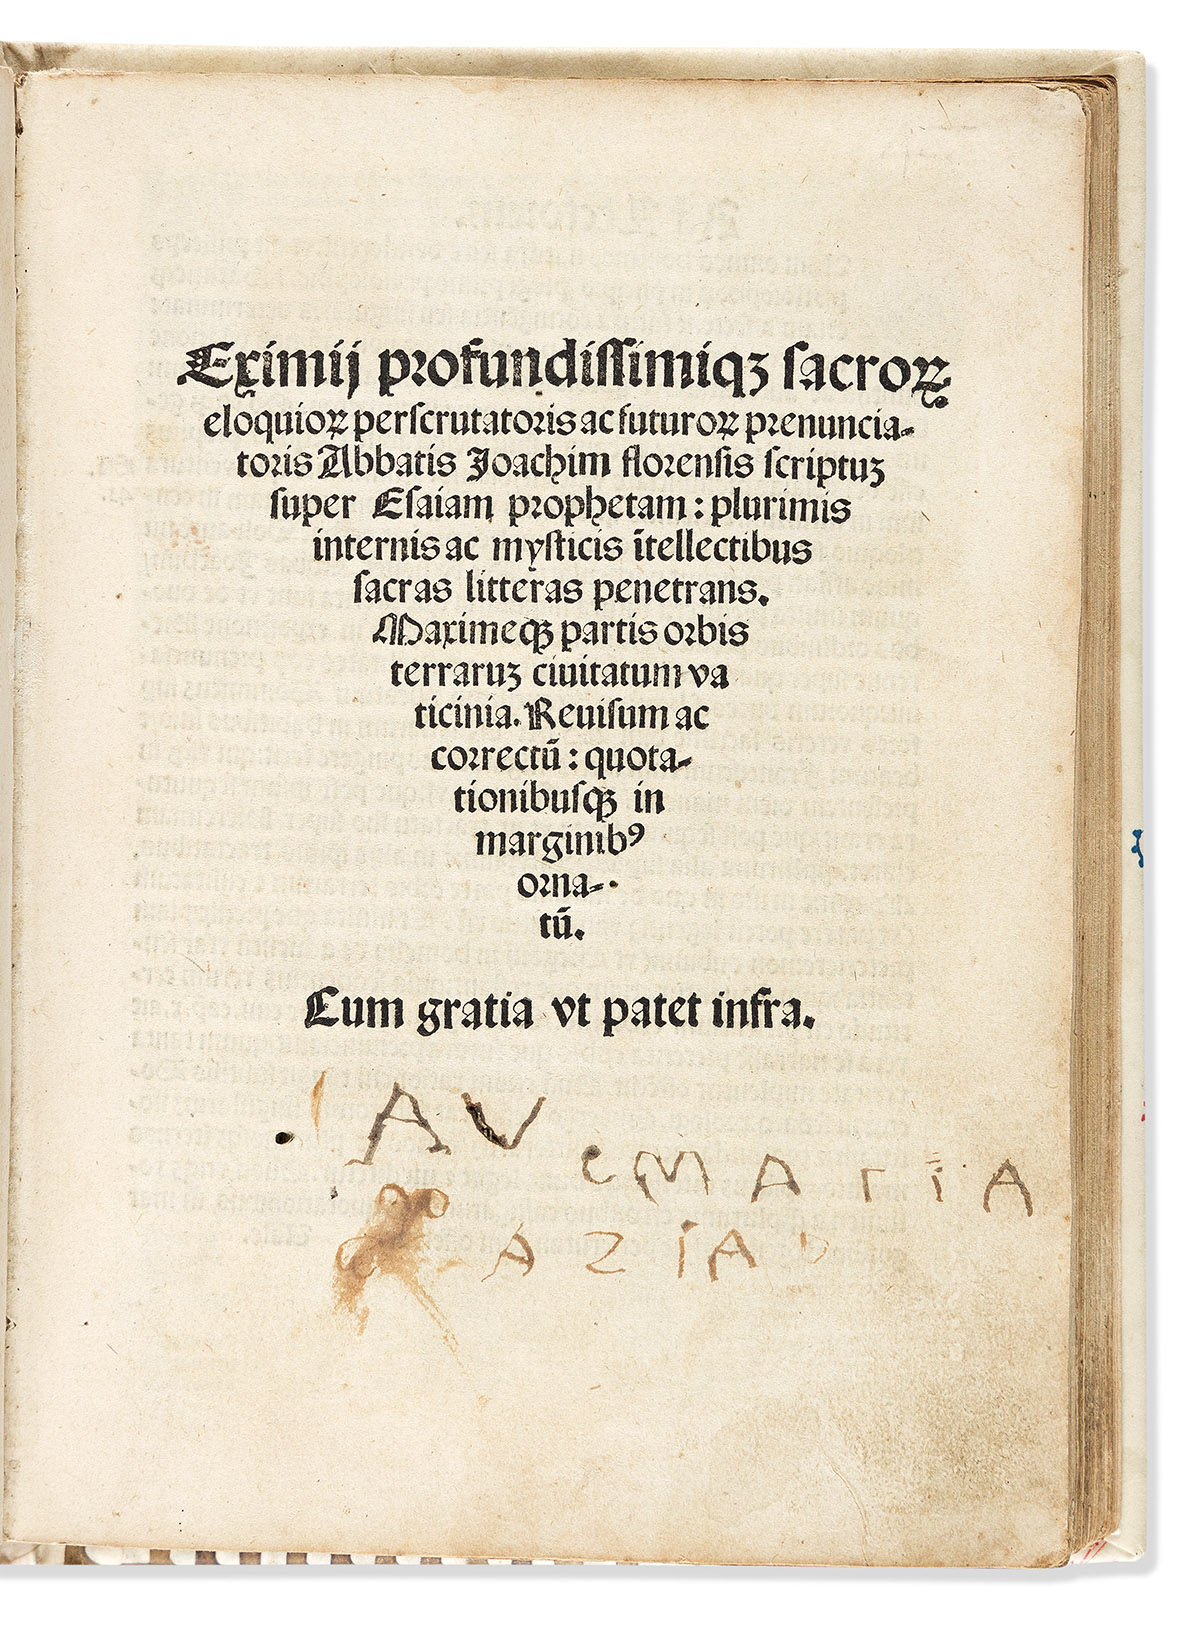 Eximij profundissimiqꝫ sacroꝝ
eloquioꝝ perscrutatoris ac futuroꝝ prenuncia-
toris Abbatis Joachim florensis scriptuꝫ
super Esaiam prophetam: plurimis
internis ac mysticis ītellectibus
sacras litteras penetrans.
Maximeqꝫ partis orbis
terraruꝫ ciuitatum va
ticinia. Reuisum ac
correctū: quota-
tionibusqꝫ in
marginibꝰ
orna-
tū.
Cum gratia vt patet infra.
AV e MAriA
AZiA